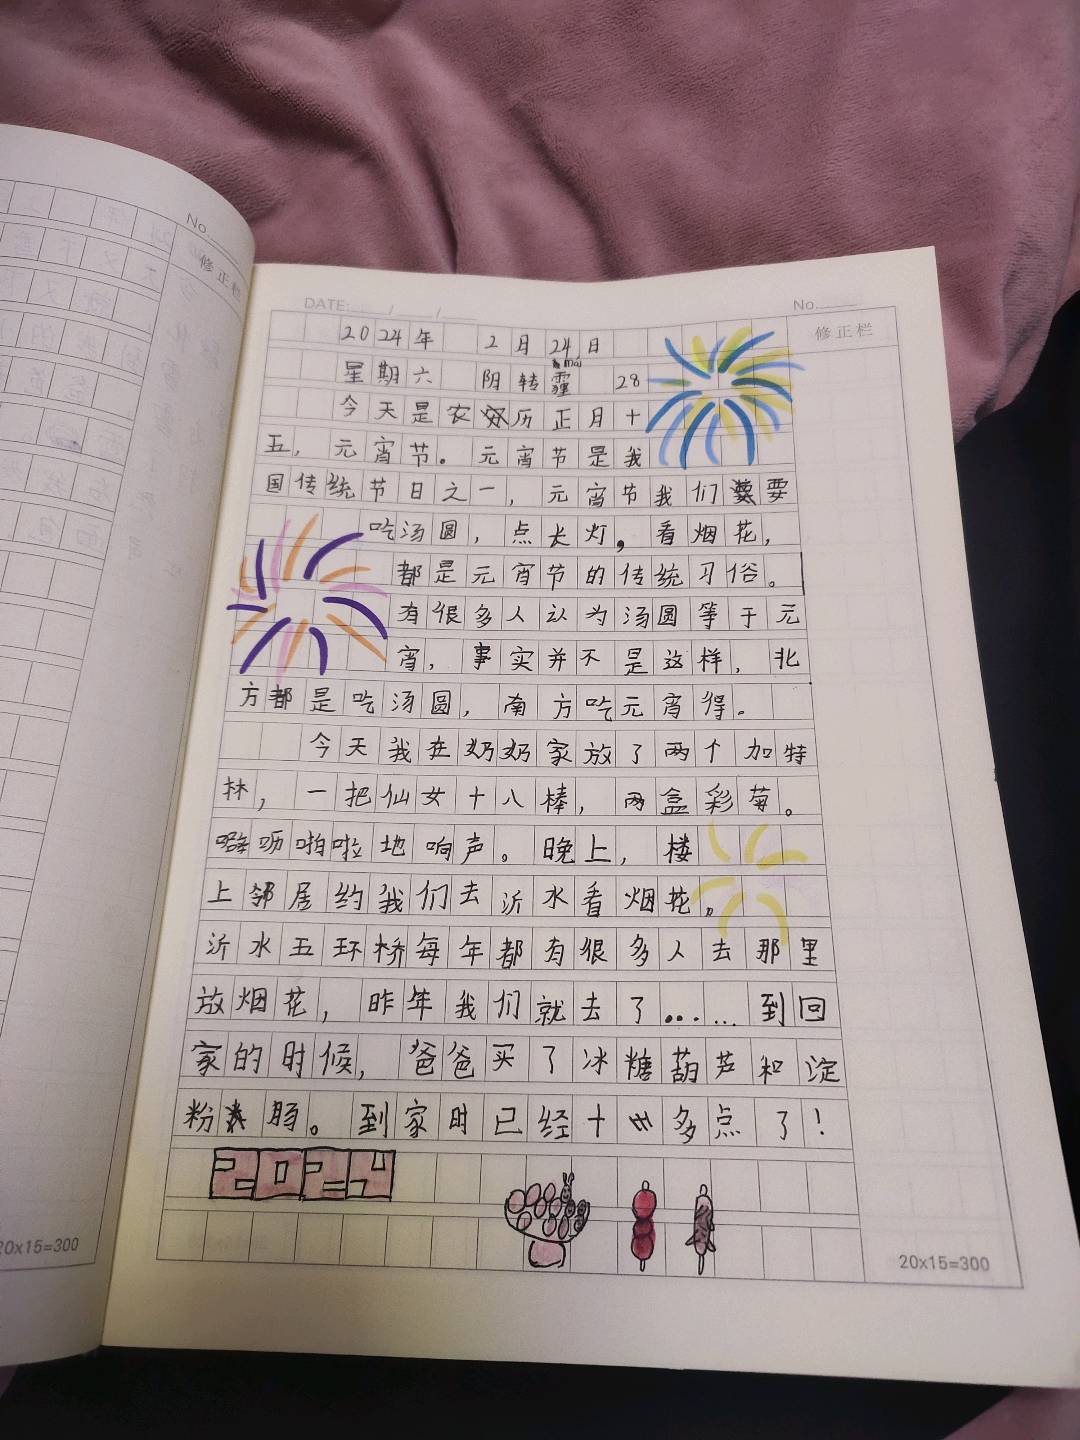 No.
修正栏
20x15=300
DATE: / /
No.
修正栏
2024年 2月24日
mái
星期六 阴转霾 28
今天是农历正月十
五，元宵节。元宵节是我
国传统节日之一，元宵节我们要
吃汤圆，点长灯，看烟花，
都是元宵节的传统习俗。
有很多人认为汤圆等于元
宵，事实并不是这样，北
方都是吃汤圆，南方吃元宵得。
今天我在奶奶家放了两个加特
林，一把仙女十八棒，两盒彩菊。
噼呖啪啦地响声。晚上，楼
上邻居约我们去沂水看烟花。
沂水五环桥每年都有很多人去那里
放烟花，昨年我们就去了……到回
家的时候，爸爸买了冰糖葫芦和淀
粉肠。到家时已经十多点了！
2024
20x15=300